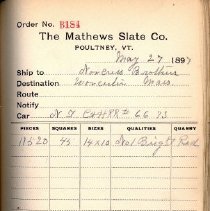 Order No. B184
The Mathews Slate Co.
POULTNEY, VT.
May 27 1897
Ship to Norcross Brothers
Destination Worcester Mass
Route
Notify
Car 66 93
PIECES SQUARES SIZES QUALITIES QUARRY
45 14x10 No1 Bright Red